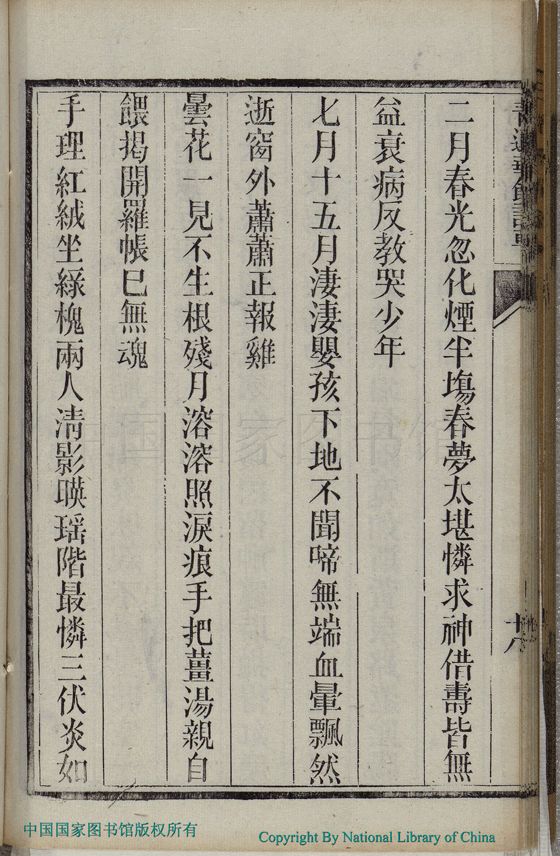 二月春光忽化煙半塲春夢太堪憐求神借壽皆無
益衰病反教哭少年
七月十五月淒淒嬰孩下地不聞啼無端血暈飄然
逝窗外蕭蕭正報雞
曇花一見不生根殘月溶溶照淚痕手把薑湯親自
餵揭開羅帳已無魂
手理紅絨坐綠槐兩人清影暎瑶階最憐三伏炎如
十八
中国国家图书馆版权所有
Copyright By National Library of China